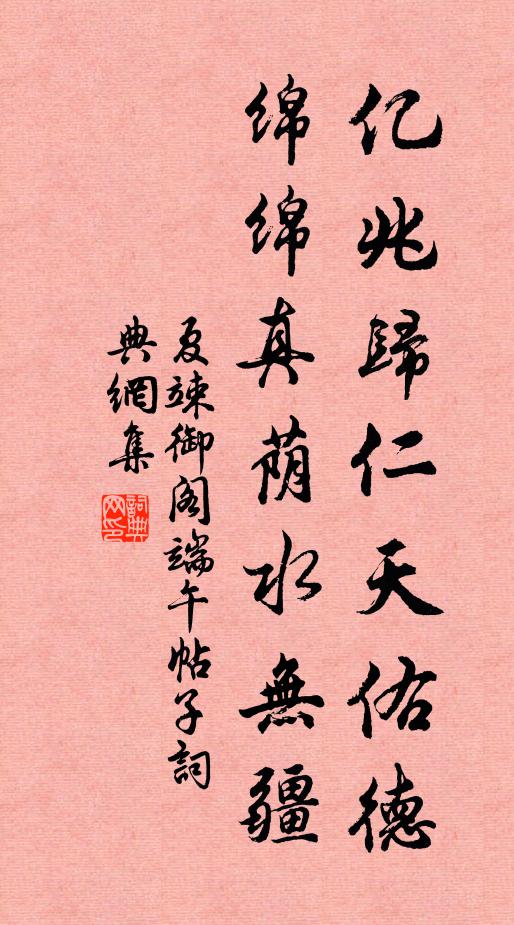 亿兆歸仁天佑德
绵绵真荫水無疆
夏竦御阁端午帖子詞
典網集
詞典网印